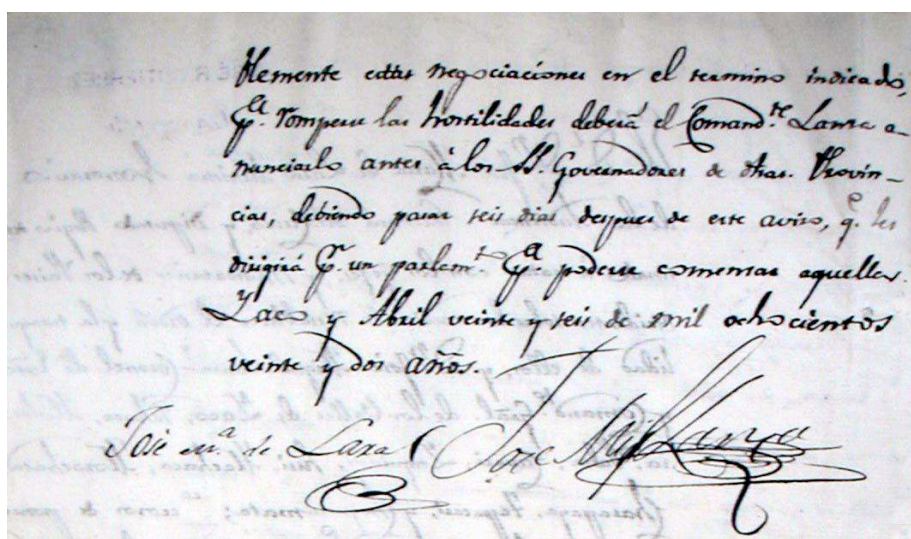 blemente estas negociaciones en el termino indicado,
pª. romperse las hostilidades deberá el Comandte. Lanza a-
nunciarlo antes á los SS. Governadores de dhas. Provin-
cias, debiendo pasar seis dias despues de este aviso, qe. les
dirigirá pr. un parlamto. pª. poderse comensar aquellas.
Yaco y Abril veinte y seis de mil ochocientos
veinte y dos años.
José mª. de Lara José Migl Lanza